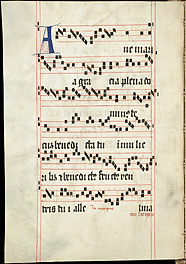 A
ue mari
a gra cia plena do
minus te
cus benedi cta tu in mulie
ri bus & benedictus fructus ven
tris tui alle luia